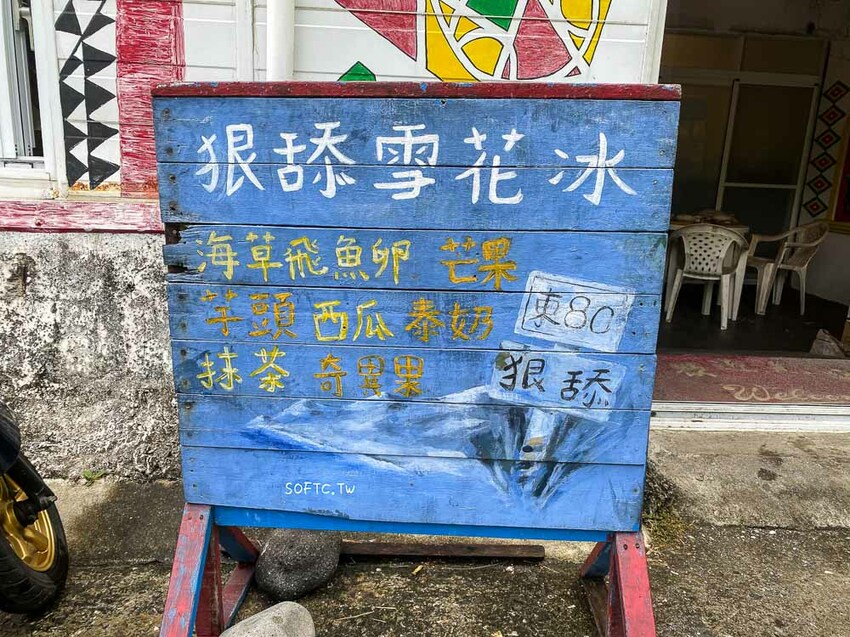 狠舔雪花冰
海草飛魚卵 芒果
芋頭 西瓜 泰奶
東80
抹茶 奇異果
狠舔
SOFTC.TW
Welcome